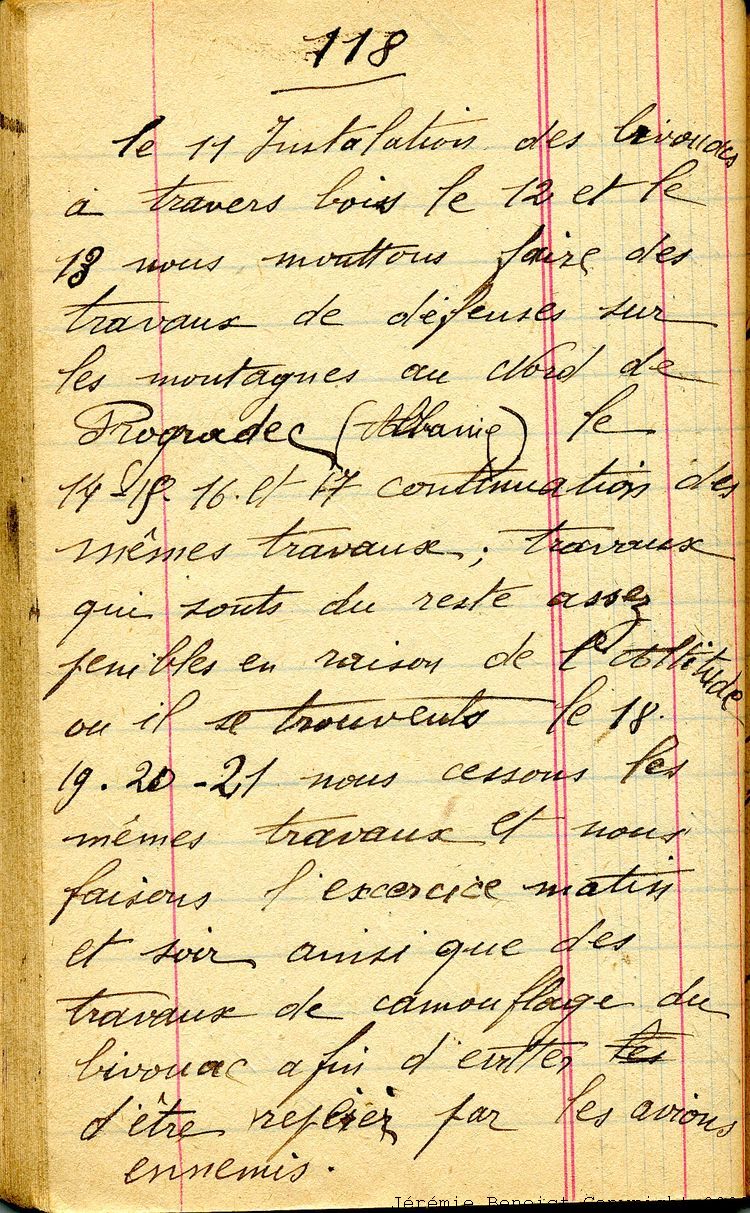 118
le 11 Instalation des bivouacs
à travers bois le 12 et le
13 nous mouttons faire des
travaux de défenses sur
les montagnes au Nord de
Progradec (Albanie) le
14-15 16. et 17 continuation des
mêmes travaux ; travaux
qui sonts du reste assez
penibles en raison de l'Altitude
ou il se trouvents le 18.
19. 20 - 21 nous cessons les
mêmes travaux et nous
faisons l'excercice matin
et soir ainsi que des
travaux de camouflage du
bivouac afin d'eviter les
d'être repérer par les avions
ennemis.
Jérémie Benoist Copyright